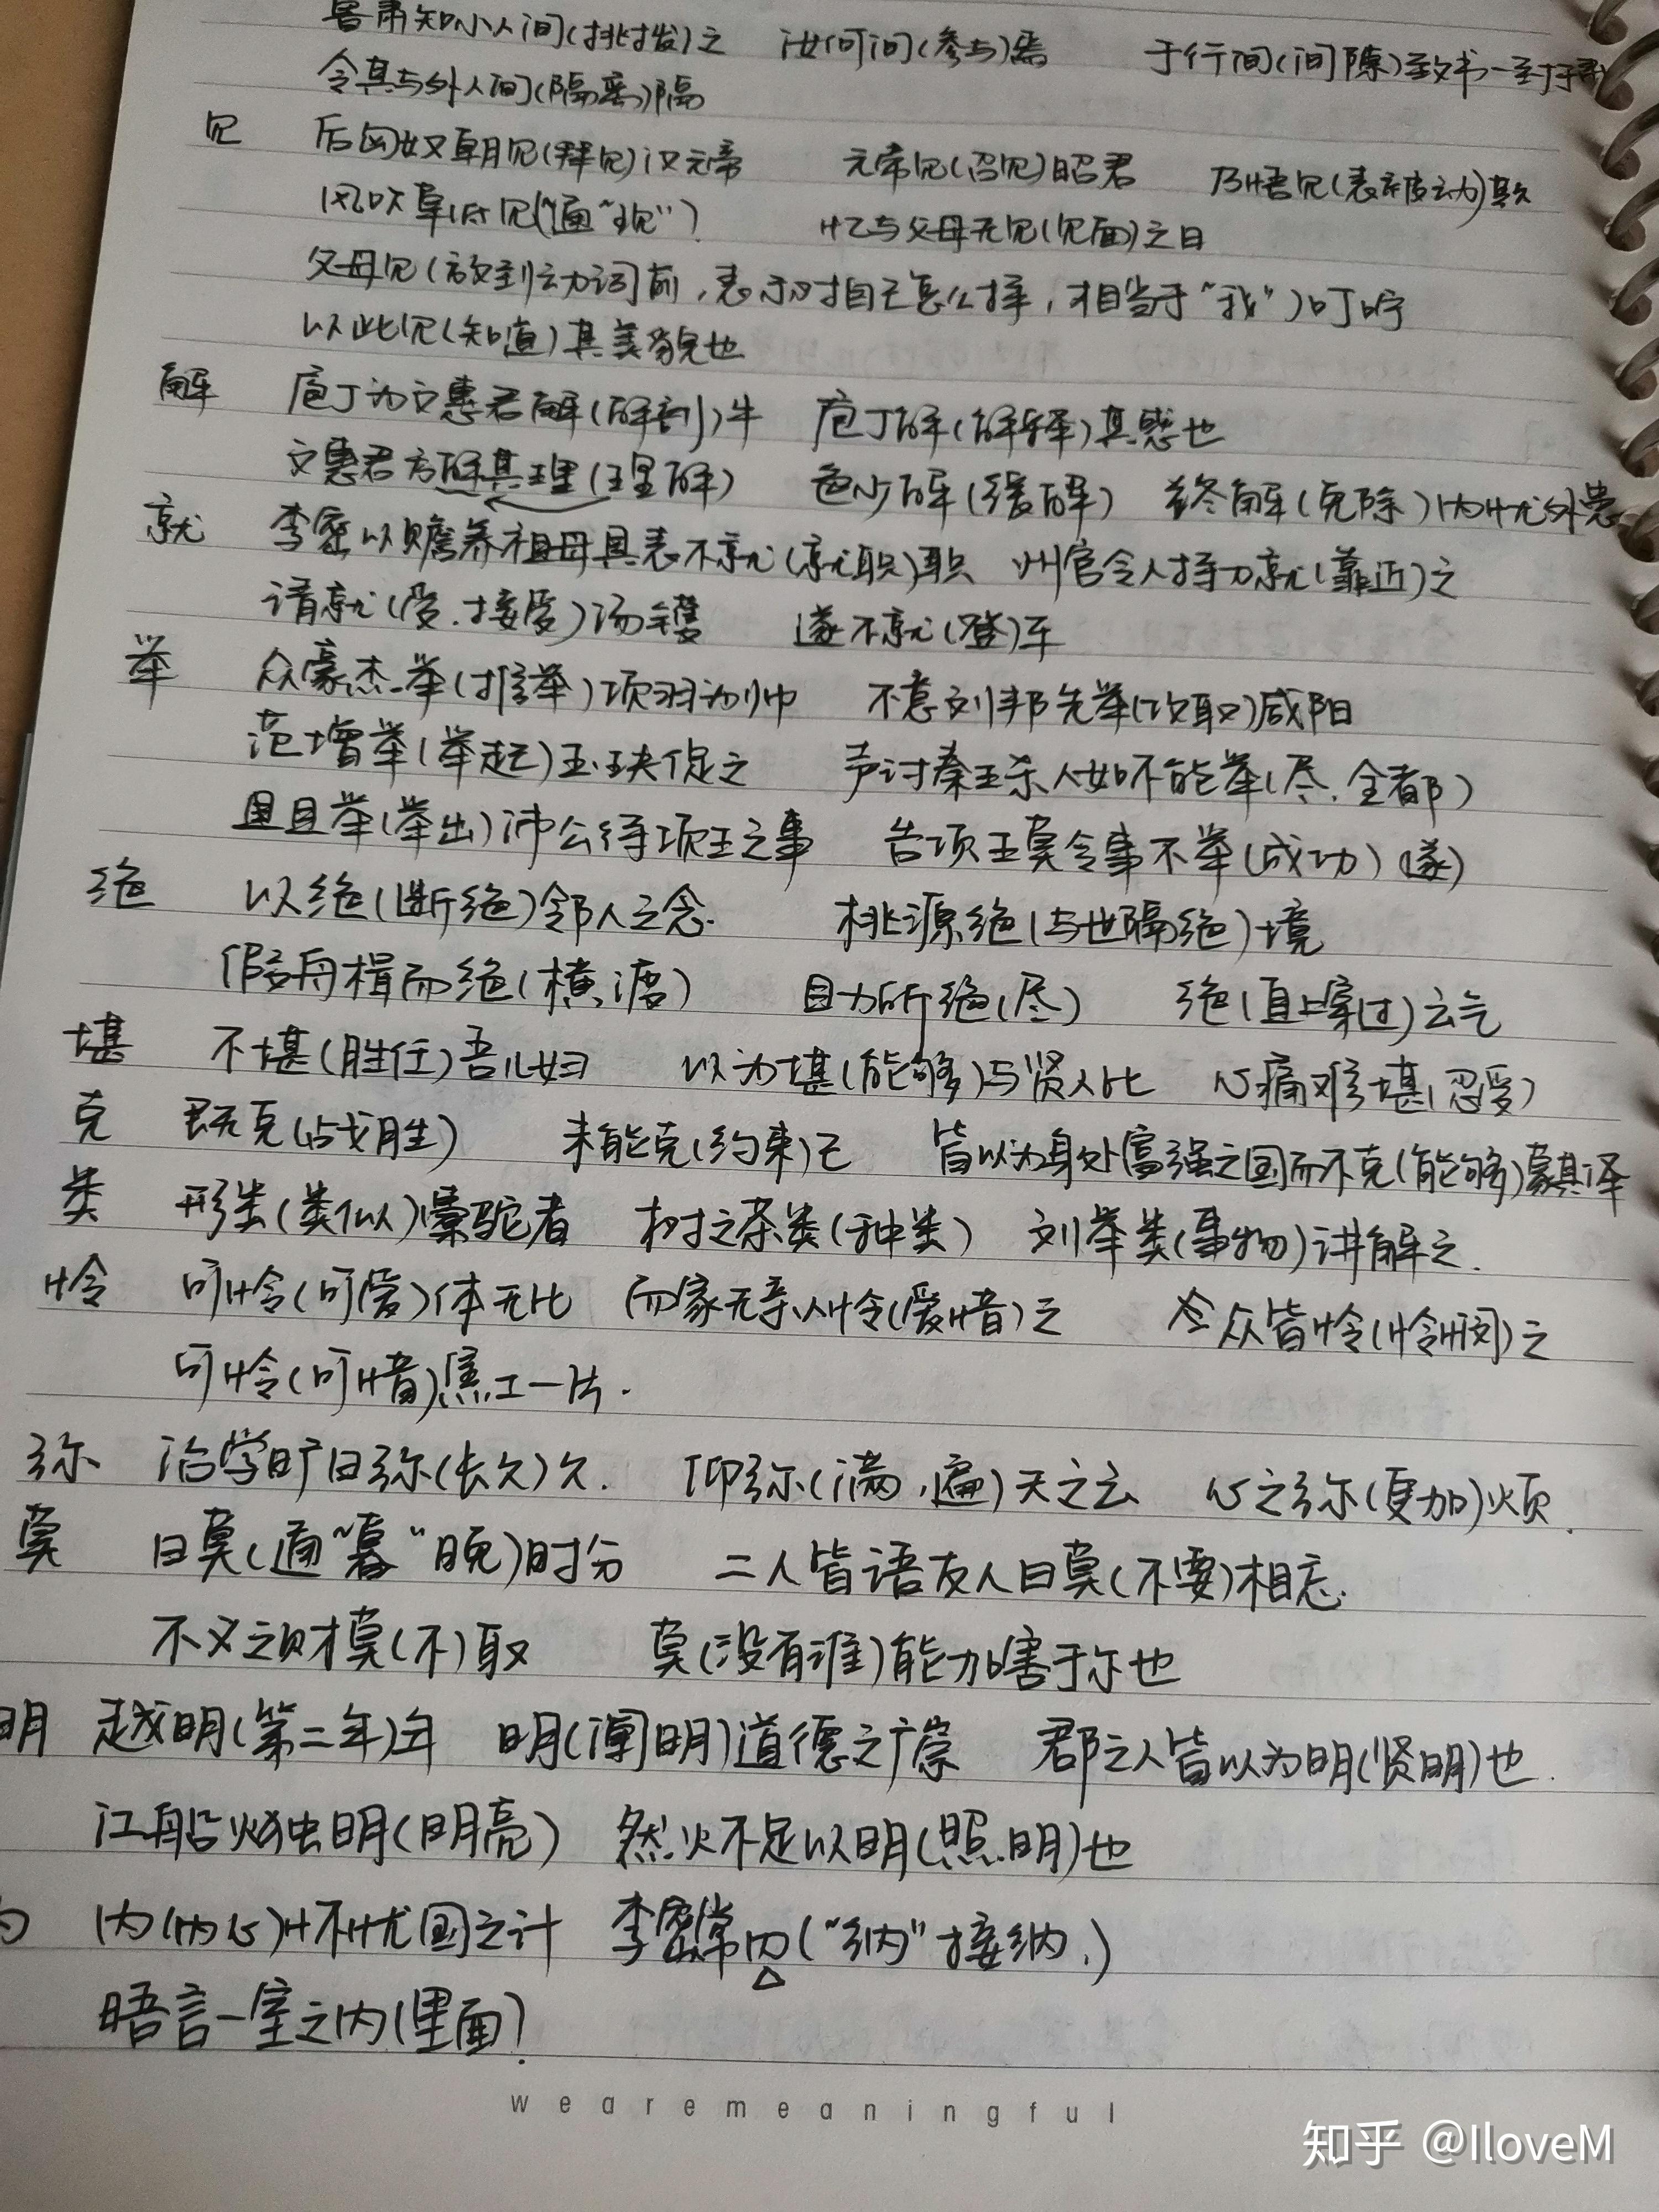 鲁肃知小人间(挑拨)之 汝何间(参与)焉 于行间(间隙)致书一至于
令其与外人间(隔离)隔
见 后匈奴朝见(拜见)汉元帝 元帝见(召见)昭君 乃悟见(表被动)欺
风吹草低见(通“现”) 忆与父母无见(见面)之日
父母见(放到动词前,表示对自己怎么样,相当于“我”)叮咛
以此见(知道)其美貌也
解 庖丁为文惠君解(解剖)牛 庖丁解(解释)其惑也
文惠君方解其理(理解) 色少解(缓解) 终解(免除)内忧外患
就 李密以赡养祖母具表不就(就职)职 州官令人持刀就(靠近)之
请就(受.接受)汤镬 遂不就(登)车
举 众豪杰举(推举)项羽为帅 不意刘邦先举(攻取)咸阳
范增举(举起)玉玦促之 声讨秦王杀人如不能举(尽.全都)
且举(举出)沛公待项王之事 告项王莫令事不举(成功)(遂)
绝 以绝(断绝)邻人之念. 桃源绝(与世隔绝)境
假舟楫而绝(横渡) 目力所绝(尽) 绝(直上穿过)云气
堪 不堪(胜任)吾儿妇 以为堪(能够)与贤人比 心痛难堪(忍受)
克 君无克(战胜) 未能克(约束)己 皆以为身处富强之国而不克(能够)蒙其泽
类 形类(类似)橐驼者 树之茶类(种类) 刘举类(事物)讲解之.
怜 可怜(可爱)体无比 而家无亲人怜(爱惜)之 众皆怜(怜悯)之
可怜(可惜)焦土一片.
弥 治学旷日弥(长久)久. 仰弥(满,遍)天之云 心之弥(更加)烦.
莫 日莫(通“暮”晚)时分 二人皆语友人曰莫(不要)相忘.
不义之财莫(不)取 莫(没有谁)能加害于尔也
明 越明(第二年)年 明(阐明)道德之广崇 郡之人皆以为明(贤明)也.
江船火独明(明亮) 然火不足以明(照明)也
内(内心)怀忧国之计 李密常内(“纳”接纳.)
晤言一室之内(里面).
wearemeaningful
知乎 @IloveM